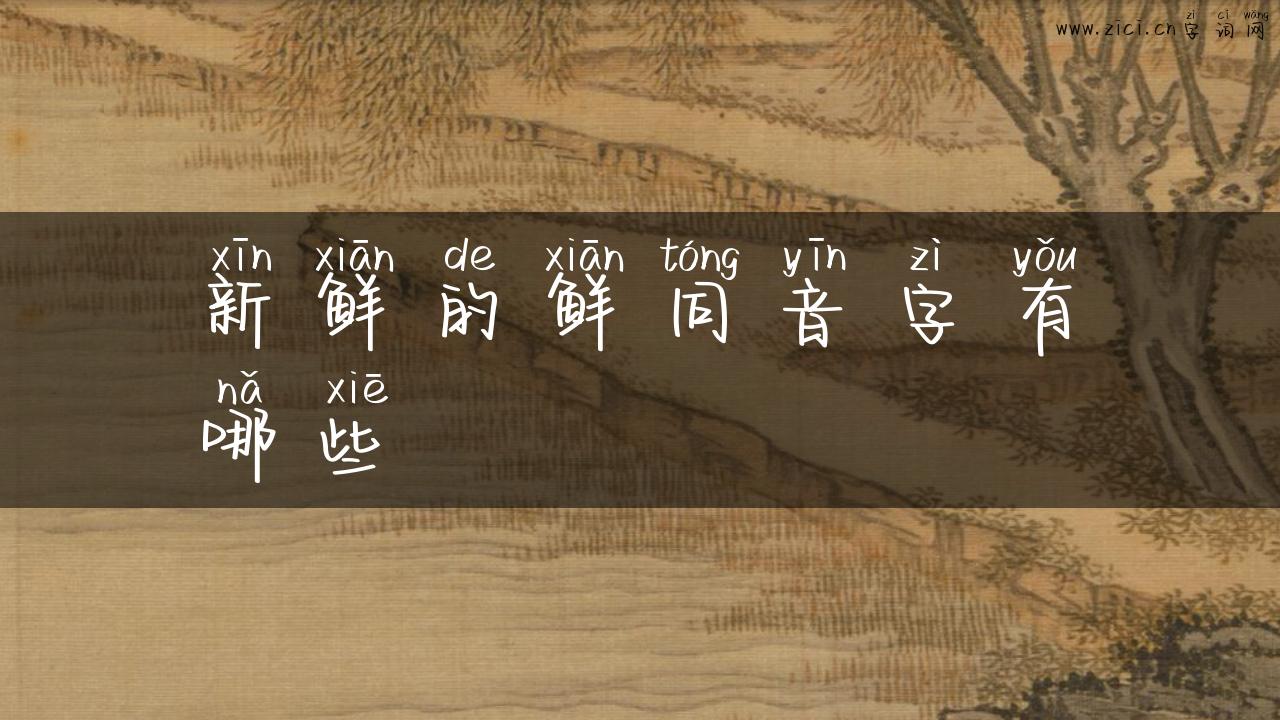 zì cí wǎng
www.zici.cn字词网
xīn xiān de xiān tóng yīn zì yǒu
新鲜的鲜同音字有
nǎ xiē
哪些